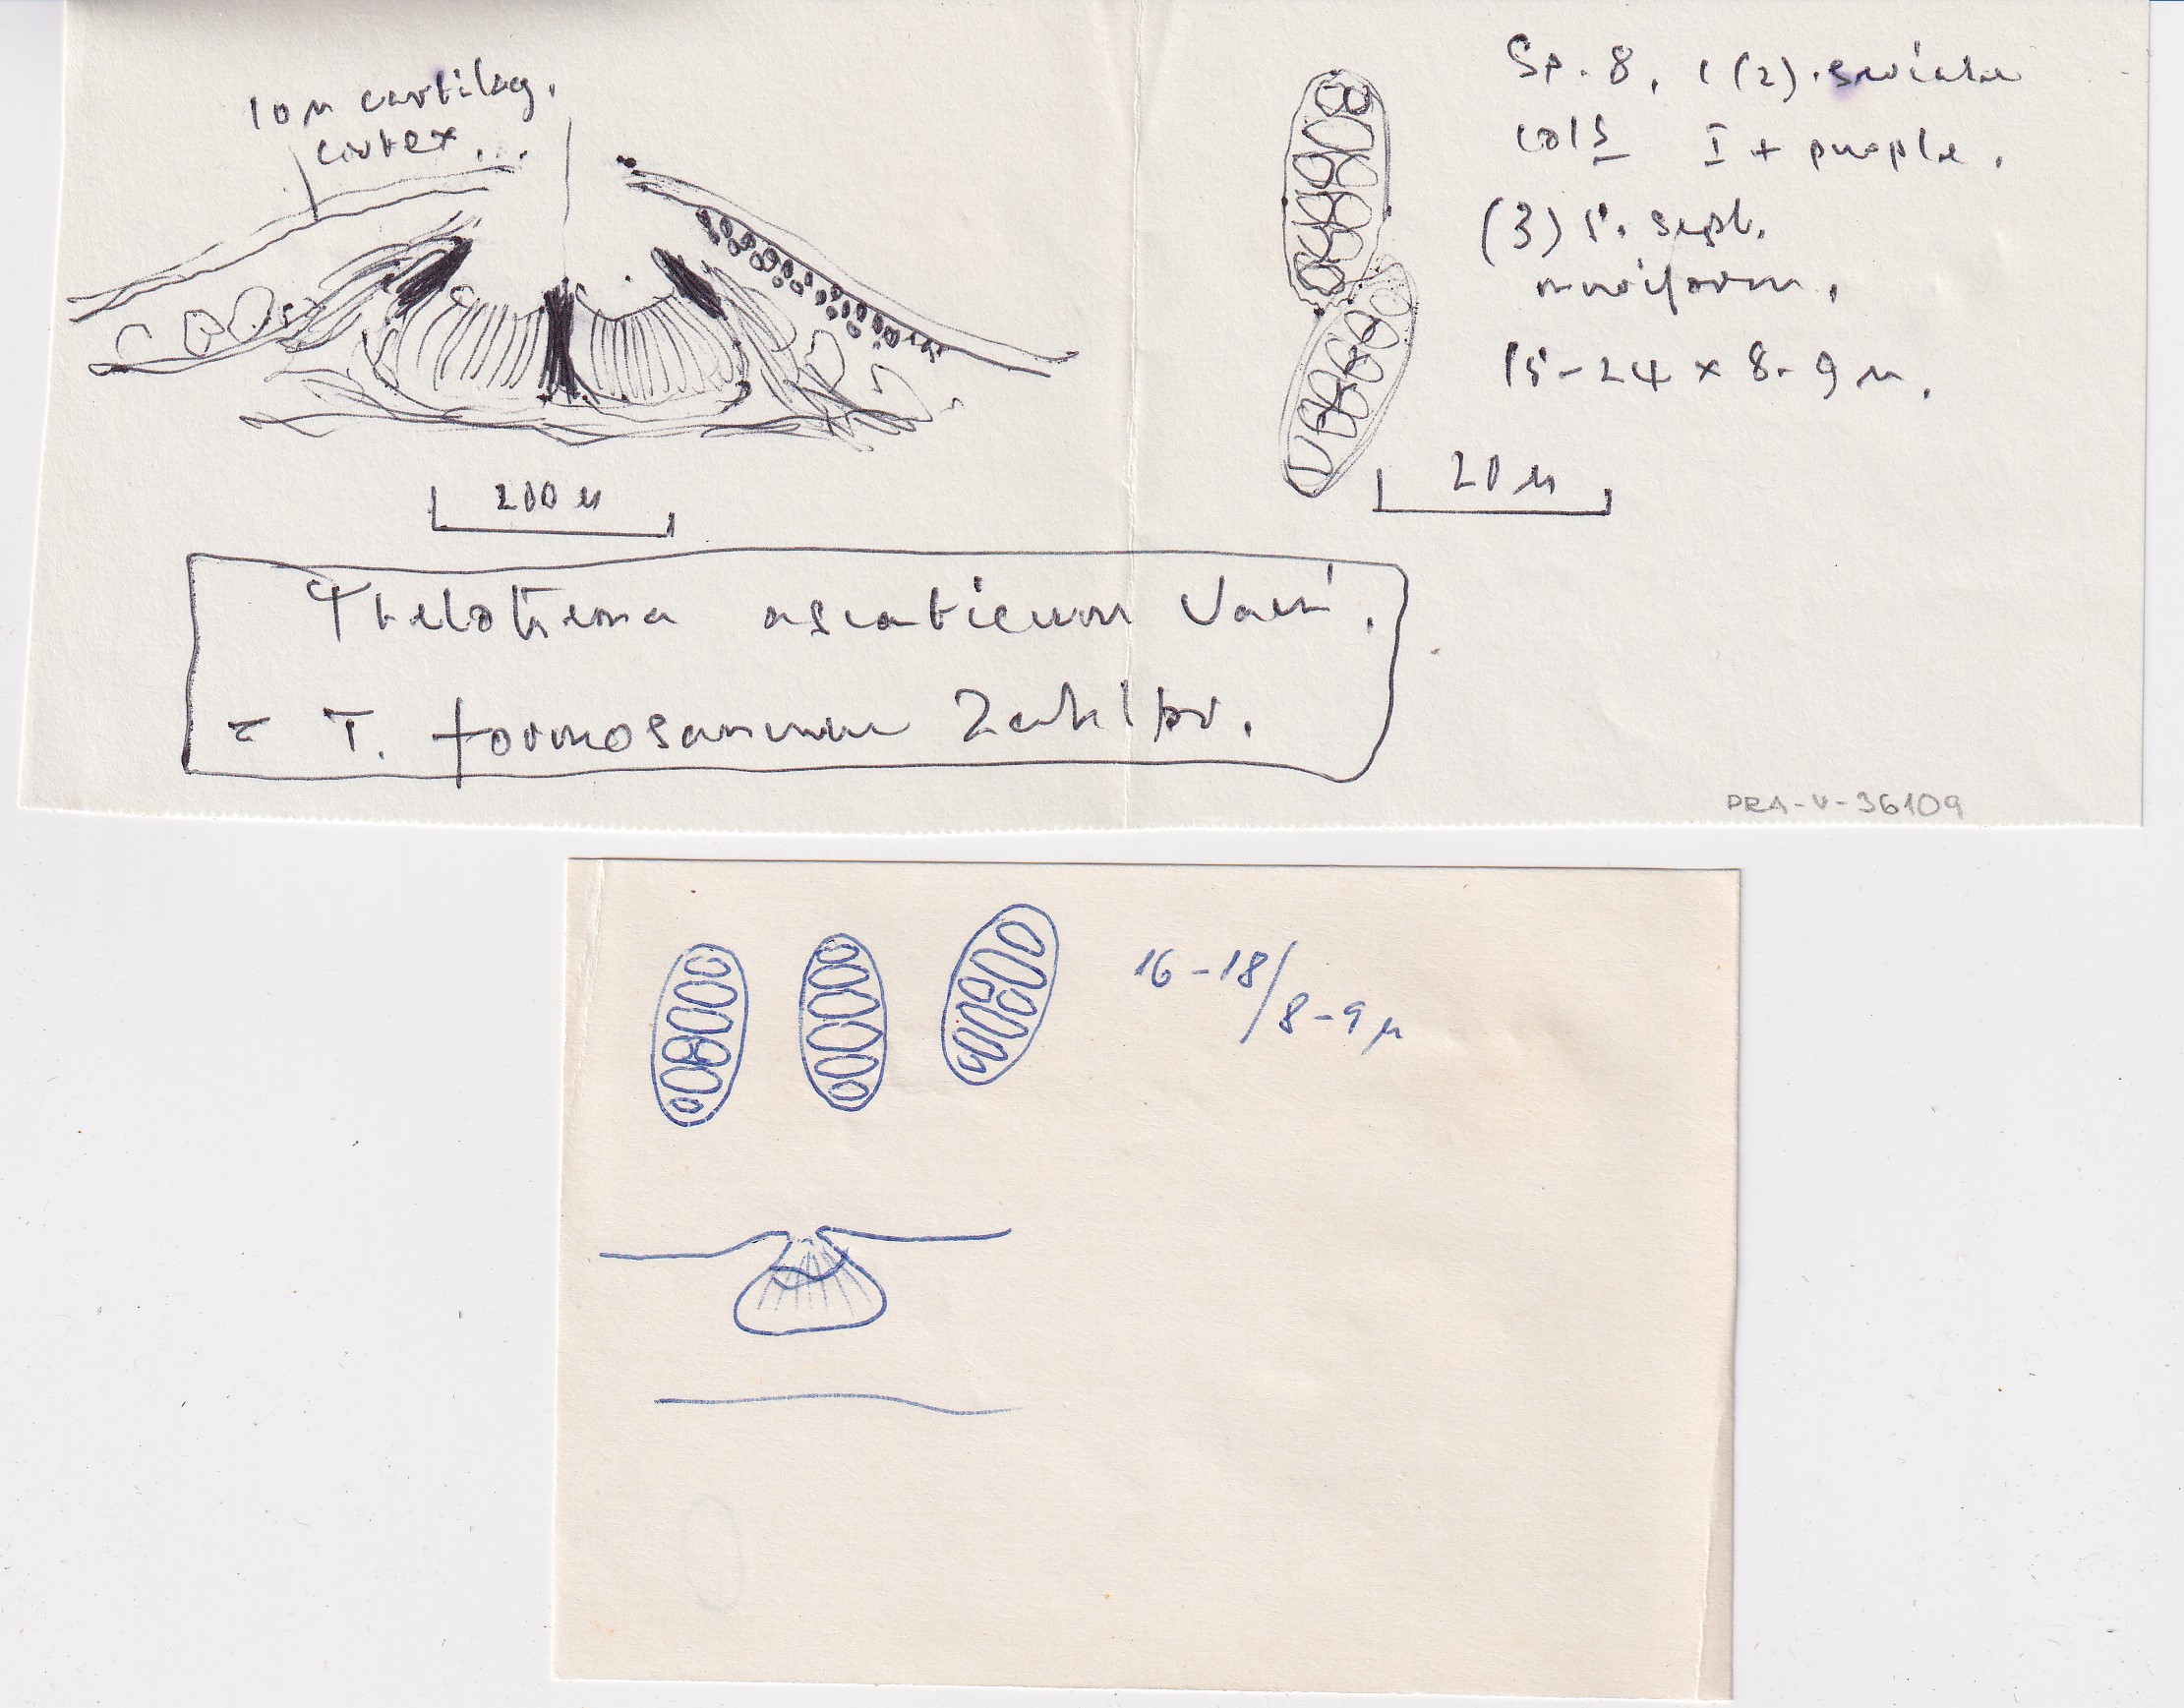 10 μ cartilag.
cortex...
200 μ
Sp. 8, 1(2).seriate
cols I + purple.
(3) 5. sept.
muriform.
15-24 x 8-9 μ.
20 μ
Thelotrema asiaticum Vain.
= T. formosanum Zahlbr.
PRA-V-36109
16-18/8-9 μ